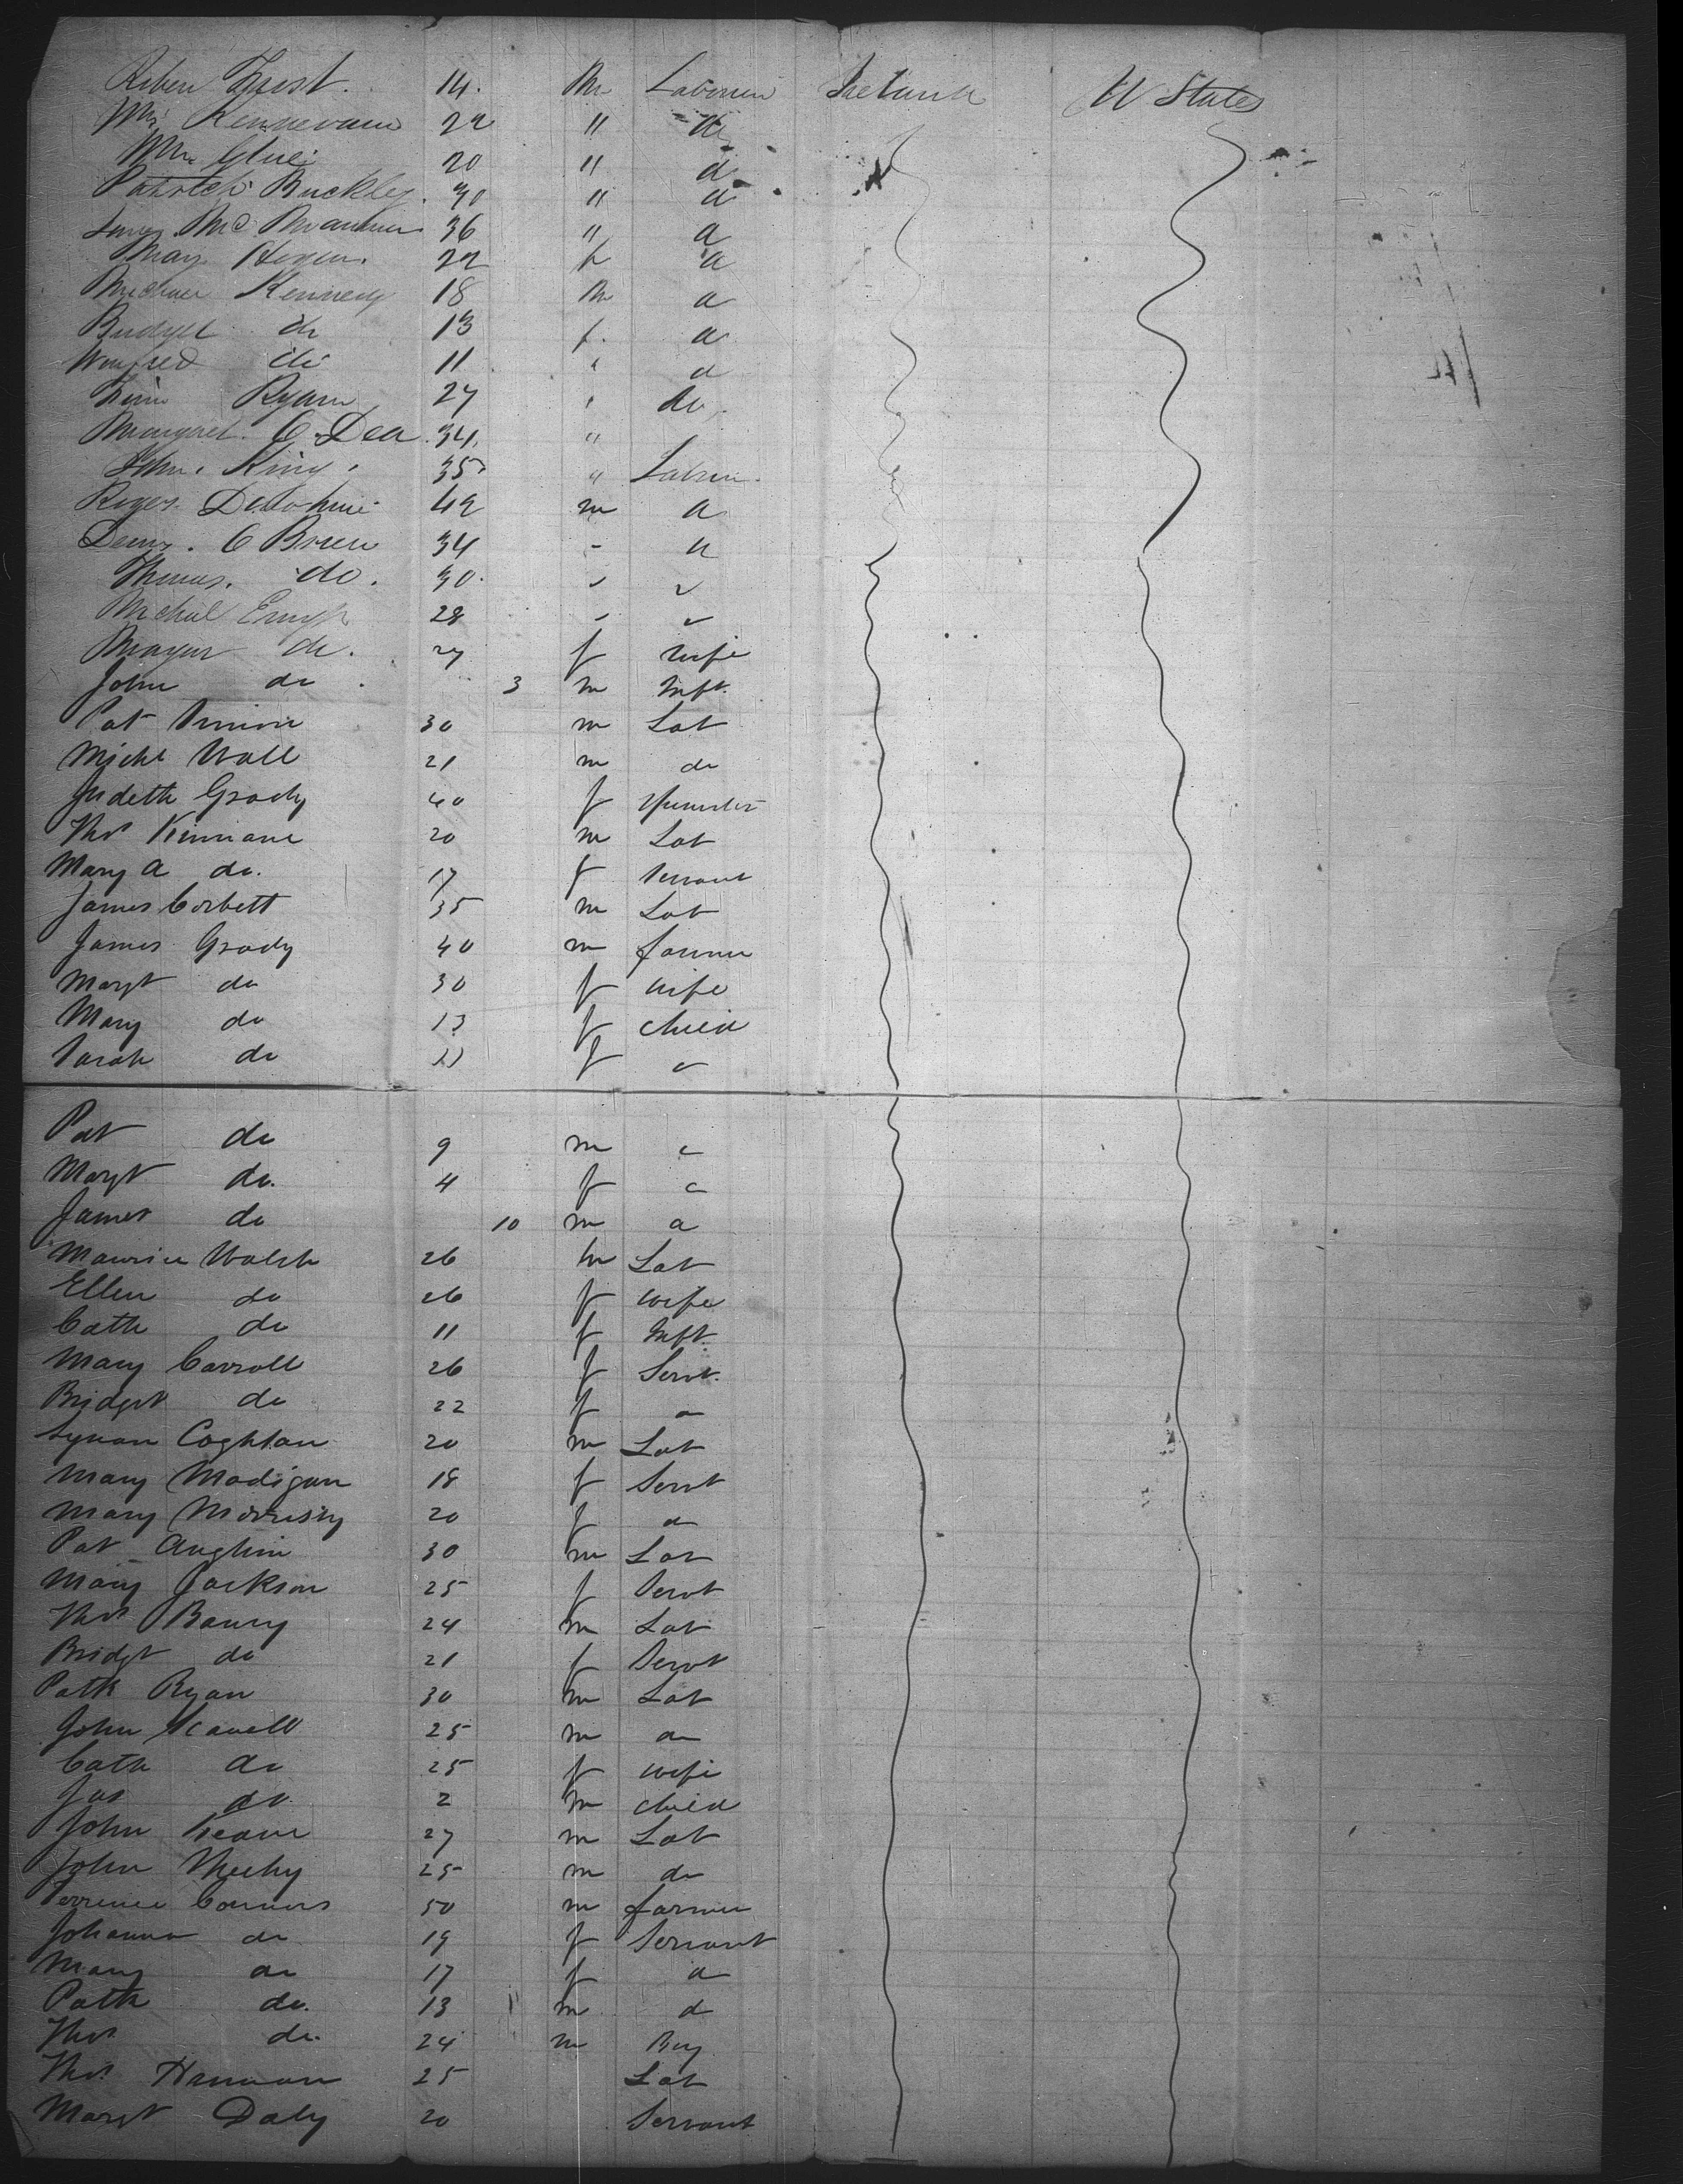 14. M Laborer Ireland U States
Wm 22 "
Wm 20 " d
Patrick Buckley. 30 " d
36 " d
Mary 22 f d
Michael Kennedy 18 M d
Bridget do 13 f. d
Winfred do 11 " d
Ryan 27 " do.
Margaret O Dea 34 "
John King 35 " Labrer
Roger 42 m d
Denis O Brien 34 - d
Thomas. do. 30.
Michael 28
do. 27 f wife
John do 3 m Inft.
Pat 30 m Lab
Michl Wall 21 m do
Judith Grady 40 f Spinster
Thos Kinnane 20 m Lab
Mary A do. 17 f Servant
James Corbett 35 m Lab
James Grady 40 m farmer
Margt do 30 f wife
Mary do 13 f child
Sarah do 11 f
Pat do 9 m
Margt do. 4 f
James do 10 m
Maurice Walsh 26 m Lab
Ellen do 26 f wife
Cath do 11 f Inft.
Mary Carroll 26 f Servt.
Bridget do 22 f
Coghlan 20 m Lab
Mary Madigan 18 f Servt
Mary Morrissy 20 f
Pat Anglim 30 m Lab
Mary Jackson 25 f Servt
Thos 24 m Lab
Bridgt do 21 f Servt
Patk Ryan 30 m Lab
John 25 m do
Cath do 25 f wife
Jas do. 2 m child
John Keane 27 m Lab
John 25 m do
Terrence Connors 50 m farmer
Johanna do 19 f Servant
Mary do 17 f d
Patk do. 13 m d
Thos do. 24 m Boy
Thos 25 Lab
Margt Daly 20 Servant